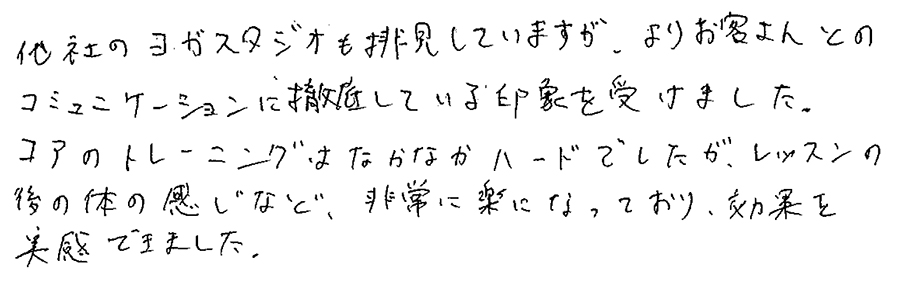 他社のヨガスタジオも拝見していますが、よりお客さんとの
コミュニケーションに徹底している印象を受けました。
コアのトレーニングはなかなかハードでしたが、レッスンの
後の体の感じなど、非常に楽になっており、効果を
実感できました。